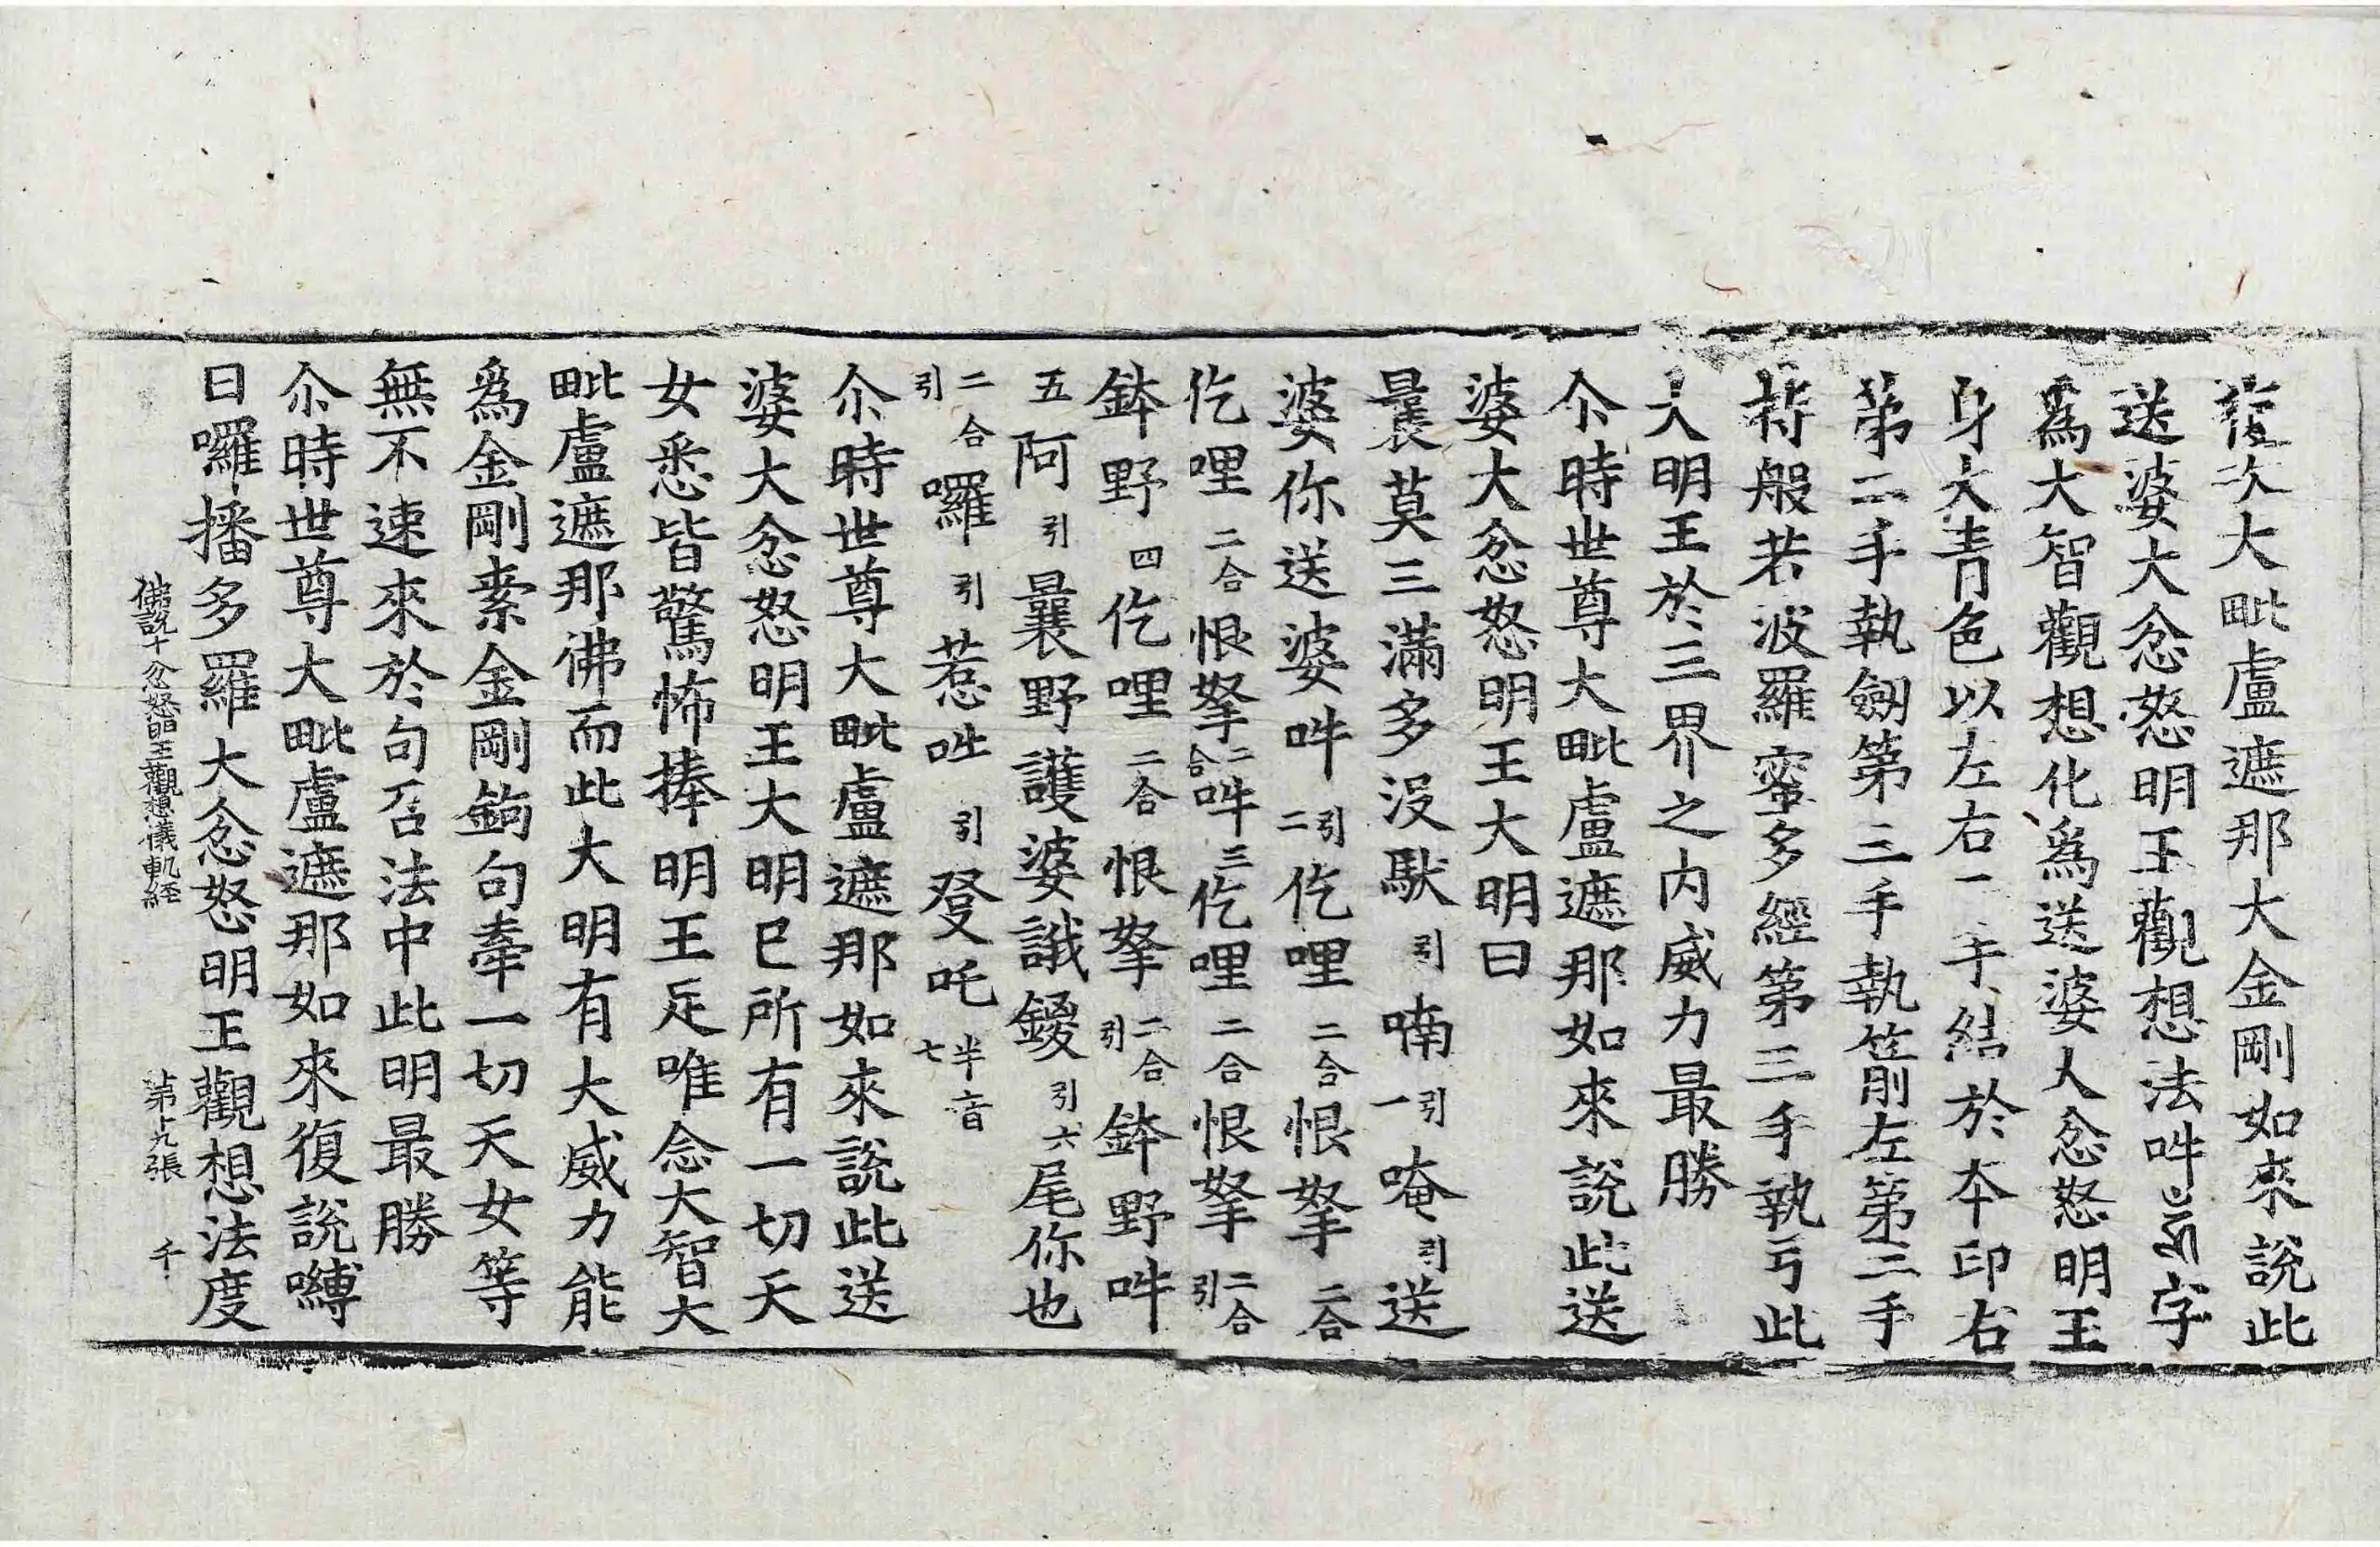 復次大毗盧遮那大金剛如來說此
送婆大忿怒明王觀想法吽字
爲大智觀想化爲送婆大忿怒明王
身大青色以左右一手結於本印右
第二手執劒第三手執箭左第二手
持般若波羅蜜多經第三手執弓此
大明王於三界之內威力最勝
尒時世尊大毗盧遮那如來說此送
婆大忿怒明王大明曰
曩莫三滿多沒馱引喃引一唵引送
婆你送婆吽引二仡哩二合恨拏二合
仡哩二合恨拏二合吽三仡哩二合恨拏二合引
鉢野四仡哩二合恨拏二合引鉢野吽
五阿引曩野護婆誐鑁引六尾你也
二合引羅引惹吽引發吒半音七
尒時世尊大毗盧遮那如來說此送
婆大忿怒明王大明已所有一切天
女悉皆驚怖捧明王足唯念大智大
毗盧遮那佛而此大明有大威力能
爲金剛索金剛鉤句牽一切天女等
無不速來於句召法中此明最勝
尒時世尊大毗盧遮那如來復說嚩
日囉播多羅大忿怒明王觀想法度
佛說十忿怒明王觀想儀軌經 第十九張 千